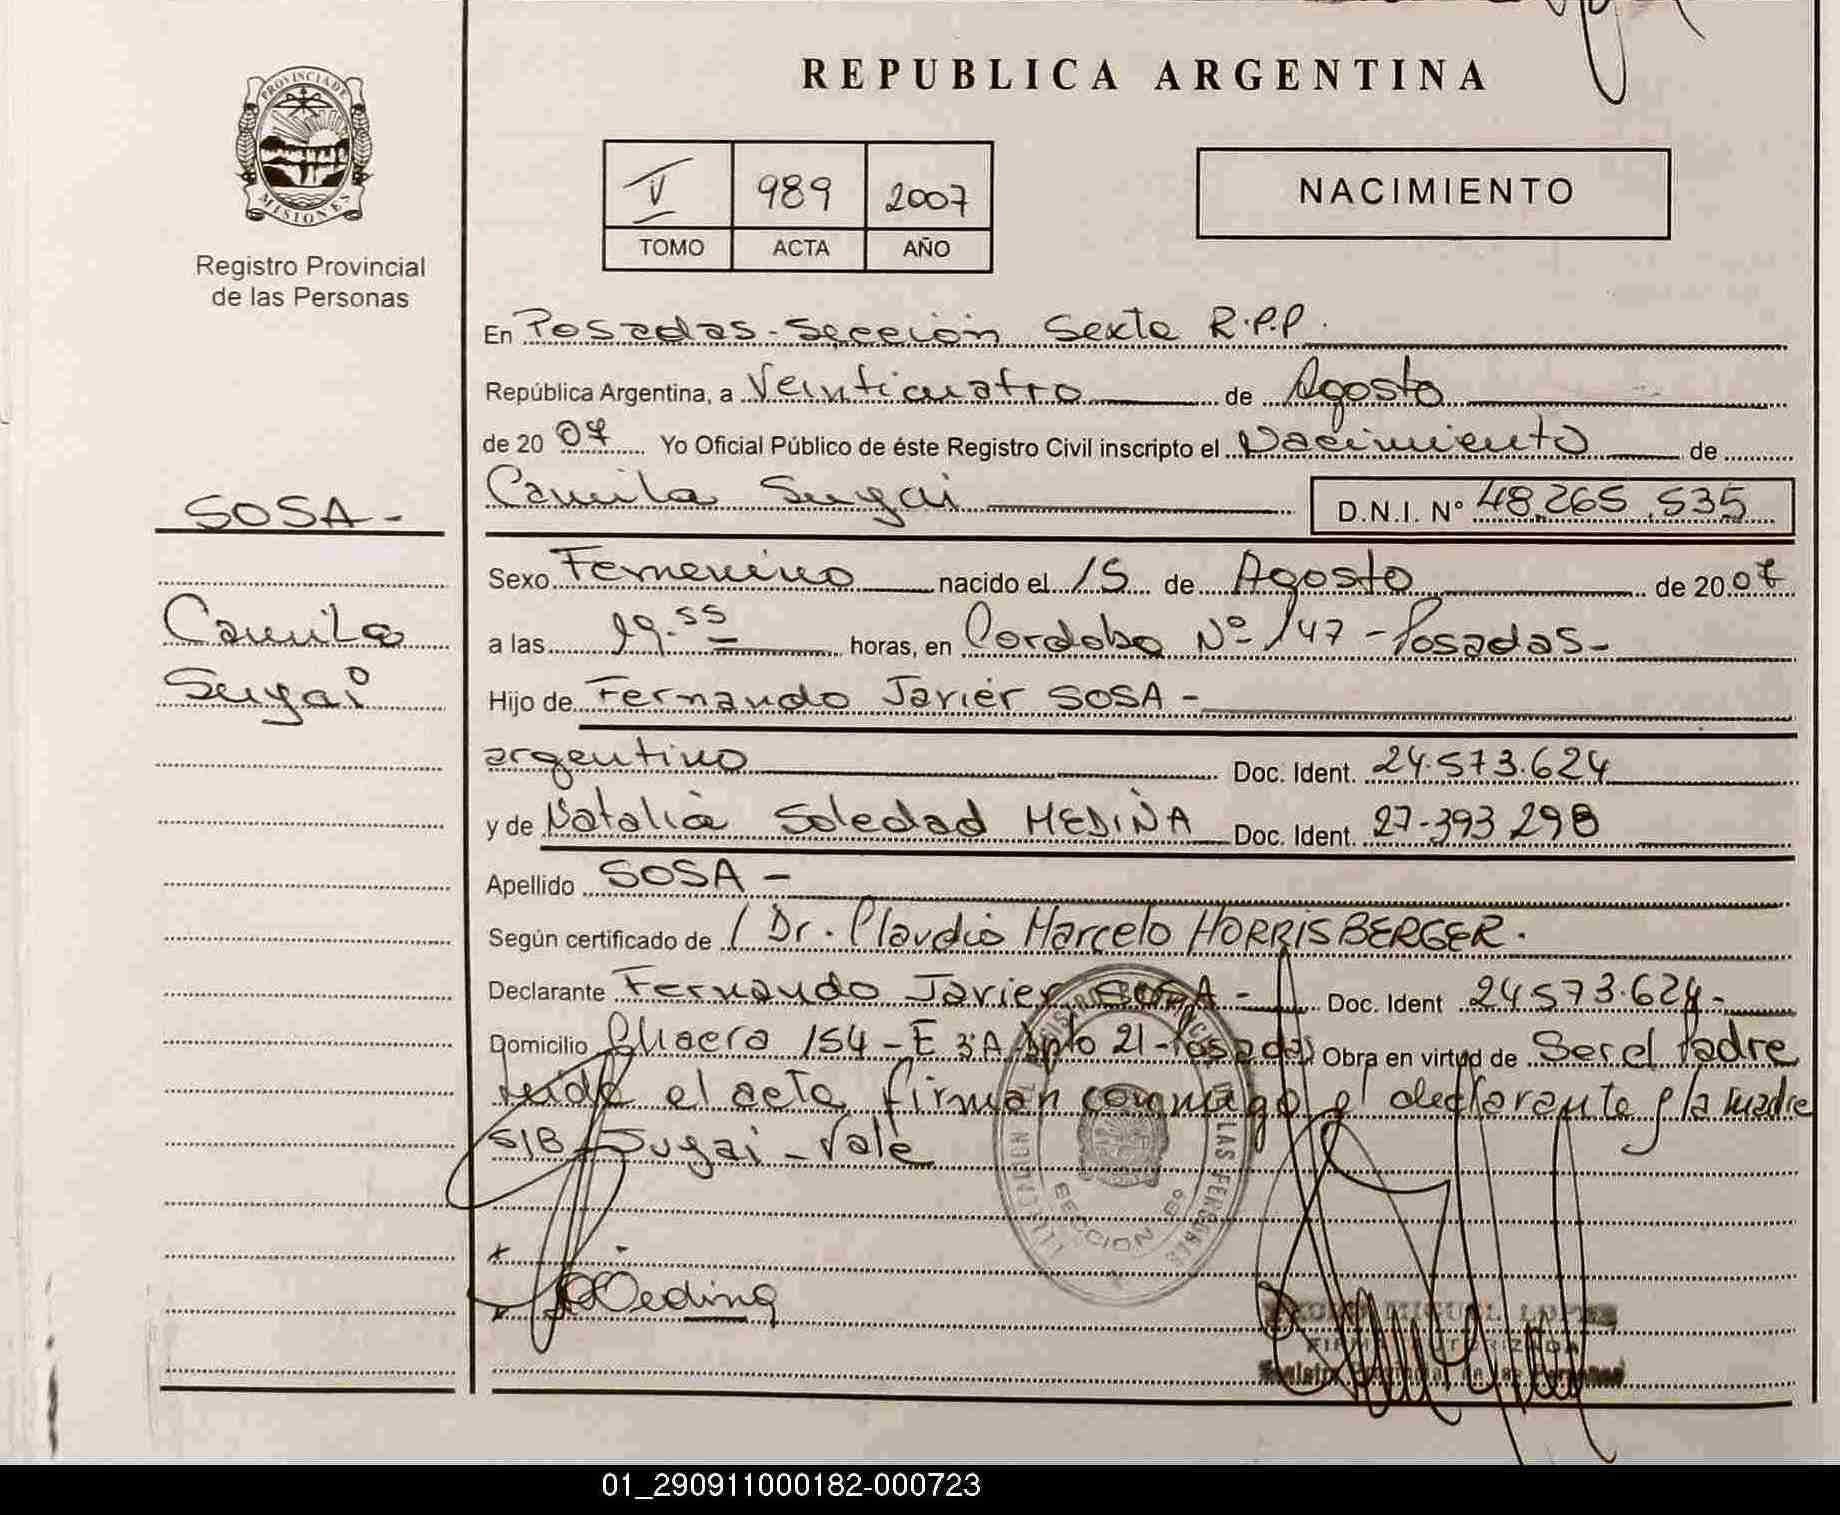 REPUBLICA ARGENTINA
PROVINCIA DE
MISIONES
Registro Provincial
de las Personas
V 989 2007
TOMO ACTA AÑO
NACIMIENTO
SOSA -
Camila
Suyai
En Posadas - Sección Sexta R.P.P.
República Argentina, a Veinticuatro de Agosto
de 20 07 Yo Oficial Público de éste Registro Civil inscripto el Nacimiento de
Camila Suyai D.N.I. Nº 48.265.535
Sexo Femenino nacido el 15 de Agosto de 20 07
a las 19.55 horas, en Cordoba Nº 147 - Posadas -
Hijo de Fernando Javier SOSA -
argentino Doc. Ident. 24.573.624
y de Natalia Soledad MEDINA Doc. Ident. 27.393.298
Apellido SOSA -
Según certificado de / Dr. Claudio Marcelo HORRISBERGER.
Declarante Fernando Javier SOSA - Doc. Ident 24573.624 -
Domicilio Chacra 154 - E 3A Dpto 21 - Posadas Obra en virtud de Ser el Padre
Leida el acta firman conmigo el declarante y la madre
S/B Suyai - Vale
SECCION 6º
Medina
MIGUEL LOPEZ
FIRMA AUTORIZADA
Registro Provincial de las Personas
01_290911000182-000723